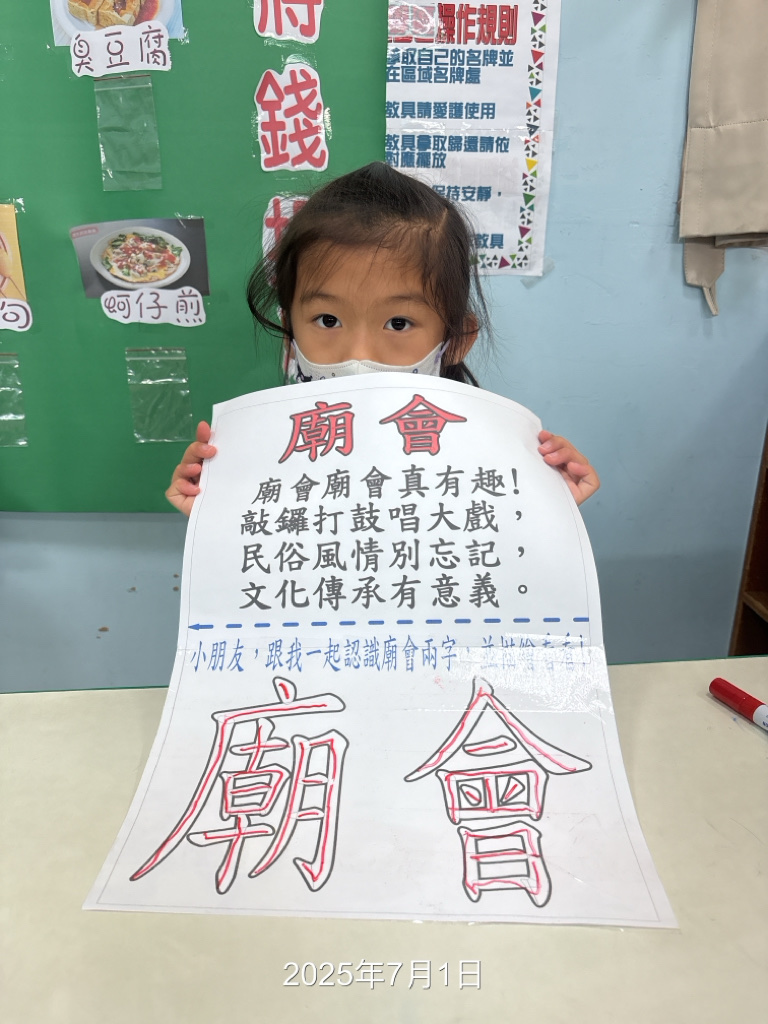 臭豆腐
錢
操作規則
取自己的名牌並
在區域名牌處
教具請愛護使用
教具拿取歸還請依
對應擺放
保持安靜，
教具
蚵仔煎
廟會
廟會廟會真有趣!
敲鑼打鼓唱大戲，
民俗風情別忘記，
文化傳承有意義。
小朋友，跟我一起認識廟會兩字，並描繪看看!
廟會
2025年7月1日